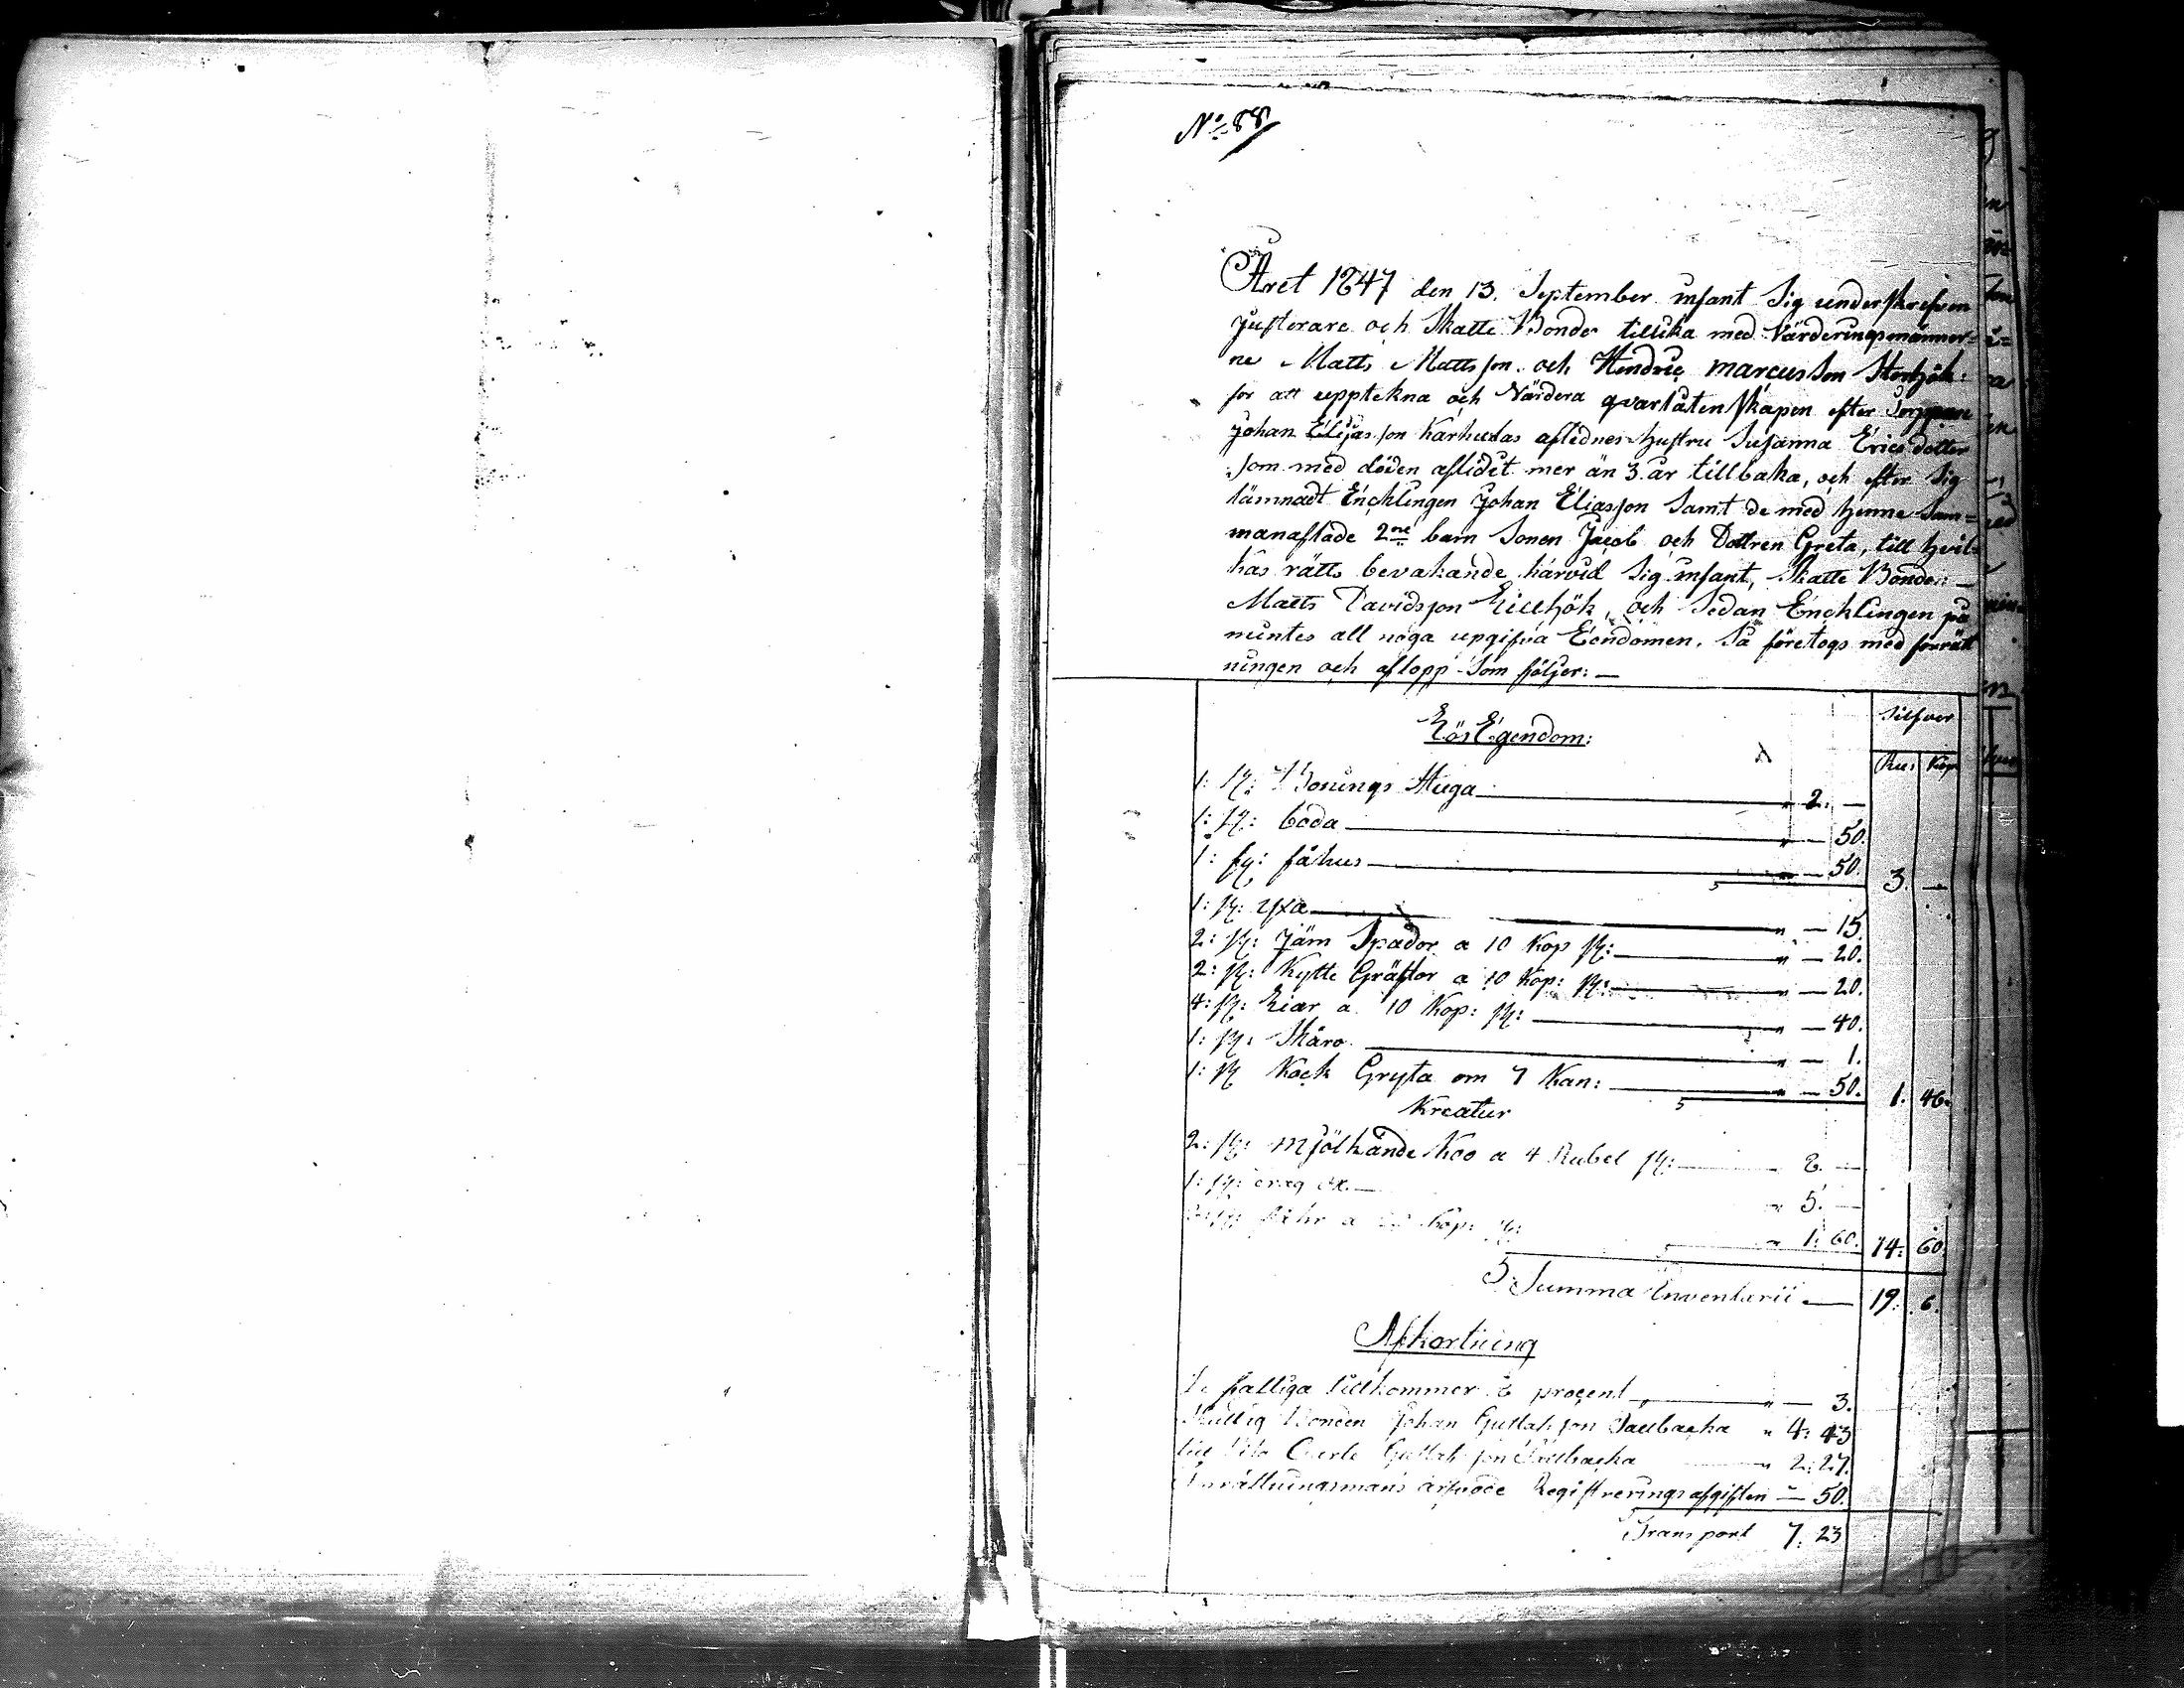 No 88
Året 1847 den 13. September infant Sig underskrefven
Justerare och Skatte Bonde tillika med Värderingsmänner=
ne Matts Mattsson och Hendric marcusson Storhök:
för att upptekna och Värdera qvarlåtenskapen efter
Johan Elijasson Karhulas aflidnes hustru Susanna Ericsdotter
som med döden aflidit mer än 3. år tillbaka, och efter Sig
lämnadt Encklingen Johan Eliasson Samt de med henne Sam=
manaflade 2ne barn Sonen Jacob och Dottren Greta, till hvil=
kas rätts bevakande härvid Sig infant, Skatte Bonden
Matts Davidsson Lillhök, och Sedan Encklingen på
mintes all noga upgifva Eendomen, Så företogs med förrätt
ningen och aflopp Som följer:
Silfver
Lös Egendom:
Ru: Kop
1: st: Bonings Stuga " 2. —
1: st: boda " — 50.
1: st: fähus " — 50. 3. —
1: st: yxa " — 15.
2: st: Järn Spador a 10 Kop st: " — 20.
2: st: Kytte Gräftor a 10 Kop: st: " — 20.
4: st: Liar a 10 Kop: st: " — 40.
1: st: Skäro " — 1.
1: st Kock Gryta om 7 Kan: " — 50. 1. 46.
Kreatur
2: st: mjölkande Koo a 4 Rubel st: " 8. —
1: st: ox " 5. —
st: fåhr a Kop: st: " 1. 60. 14: 60.
Summa Inventarii — 19: 6.
Afkortning
fattiga tillkommer procent " — 3.
Bonden Johan Gustafsson Saulbacka " 4: 43
Gustafsson " 2: 27.
arfvode Registreringsafgiften " — 50.
Transport 7: 23